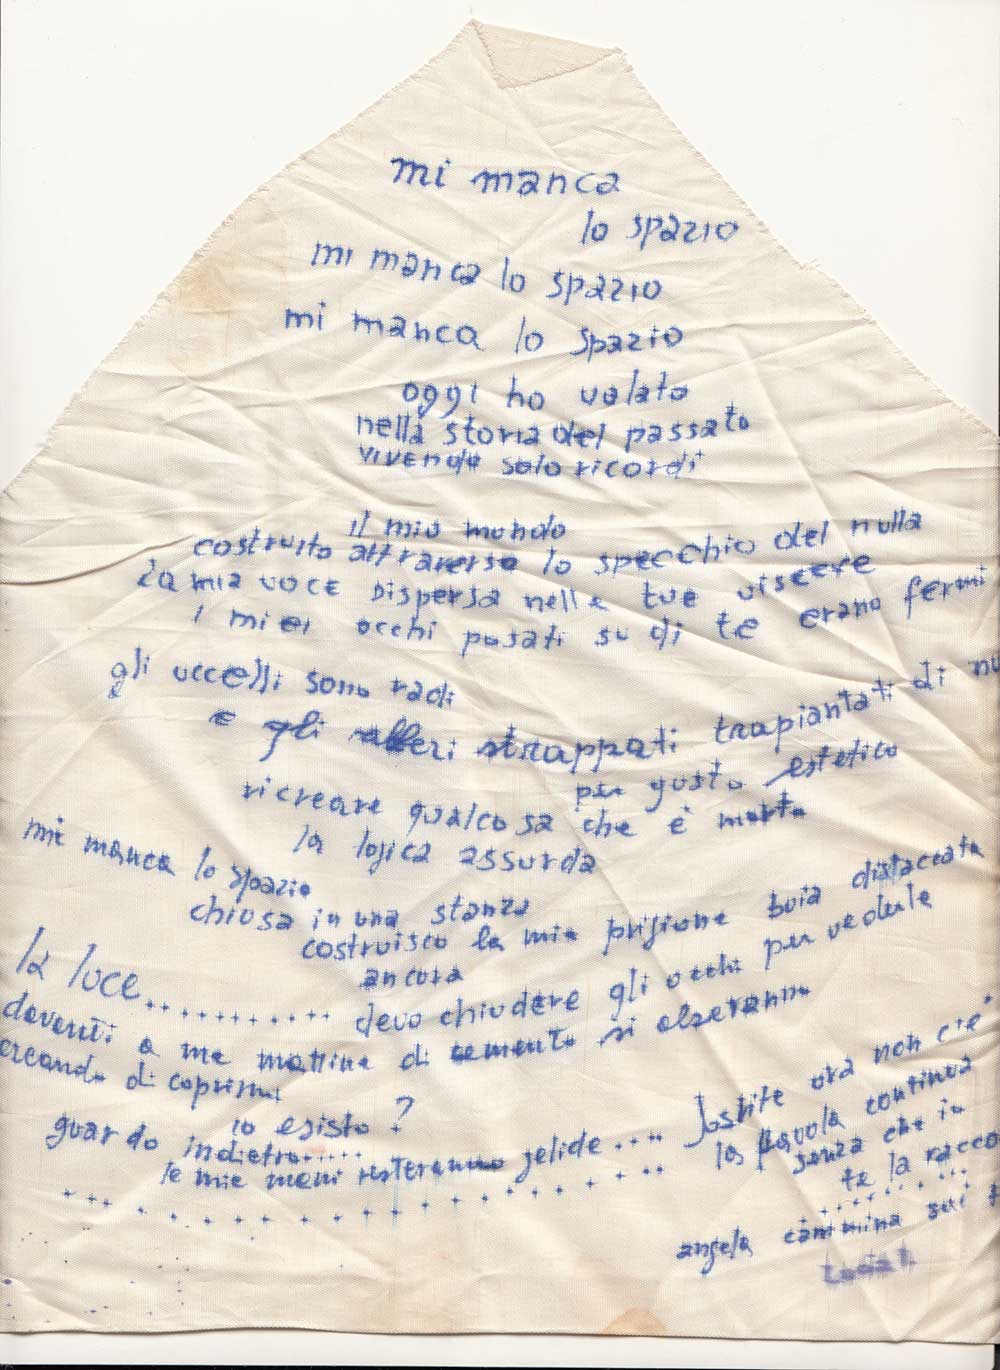 mi manca
lo spazio
mi manca lo spazio
mi manca lo spazio
oggi ho volato
nella storia del passato
vivendo solo ricordi
il mio mondo
costruito attraverso lo specchio del nulla
la mia voce dispersa nelle tue viscere
I miei occhi posati su di te erano fermi
gli uccelli sono radi
e gli alberi strappati trapiantati di nu
per gusto estetico
ricreare qualcosa che è morto
la logica assurda
mi manca lo spazio
chiusa in una stanza
costruisco la mia prigione buia distaccata
ancora
la luce........... devo chiudere gli occhi per vederle
davanti a me mattine di cemento si alzeranno
ercando di coprirmi
io esisto?
guardo indietro.....
le mie mani resteranno gelide.... ora non c'è
la favola continua
senza che io
te la racco
angela cammina sui